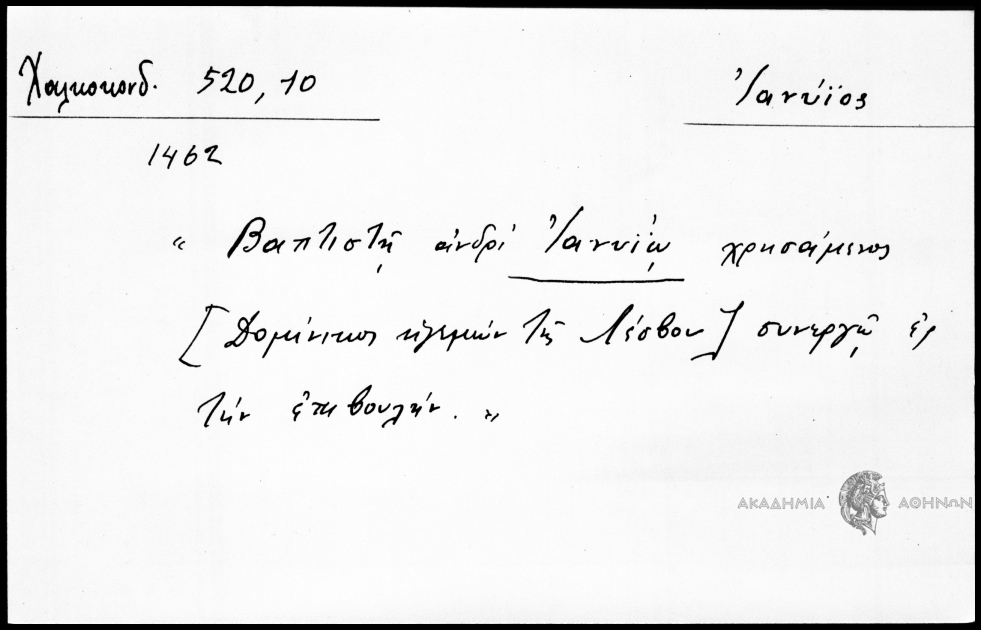 Χαλκοκονδ. 520, 10
Ἰανύϊος
1462
“ Βαπτιστῇ ἀνδρὶ Ἰανυΐῳ χρησάμενος
[Δομίνικος ἡγεμὼν τῆς Λέσβου] συνεργῷ ἐς
τὴν ἐπιβουλήν. ”
ΑΚΑΔΗΜΙΑ ΑΘΗΝΩΝ